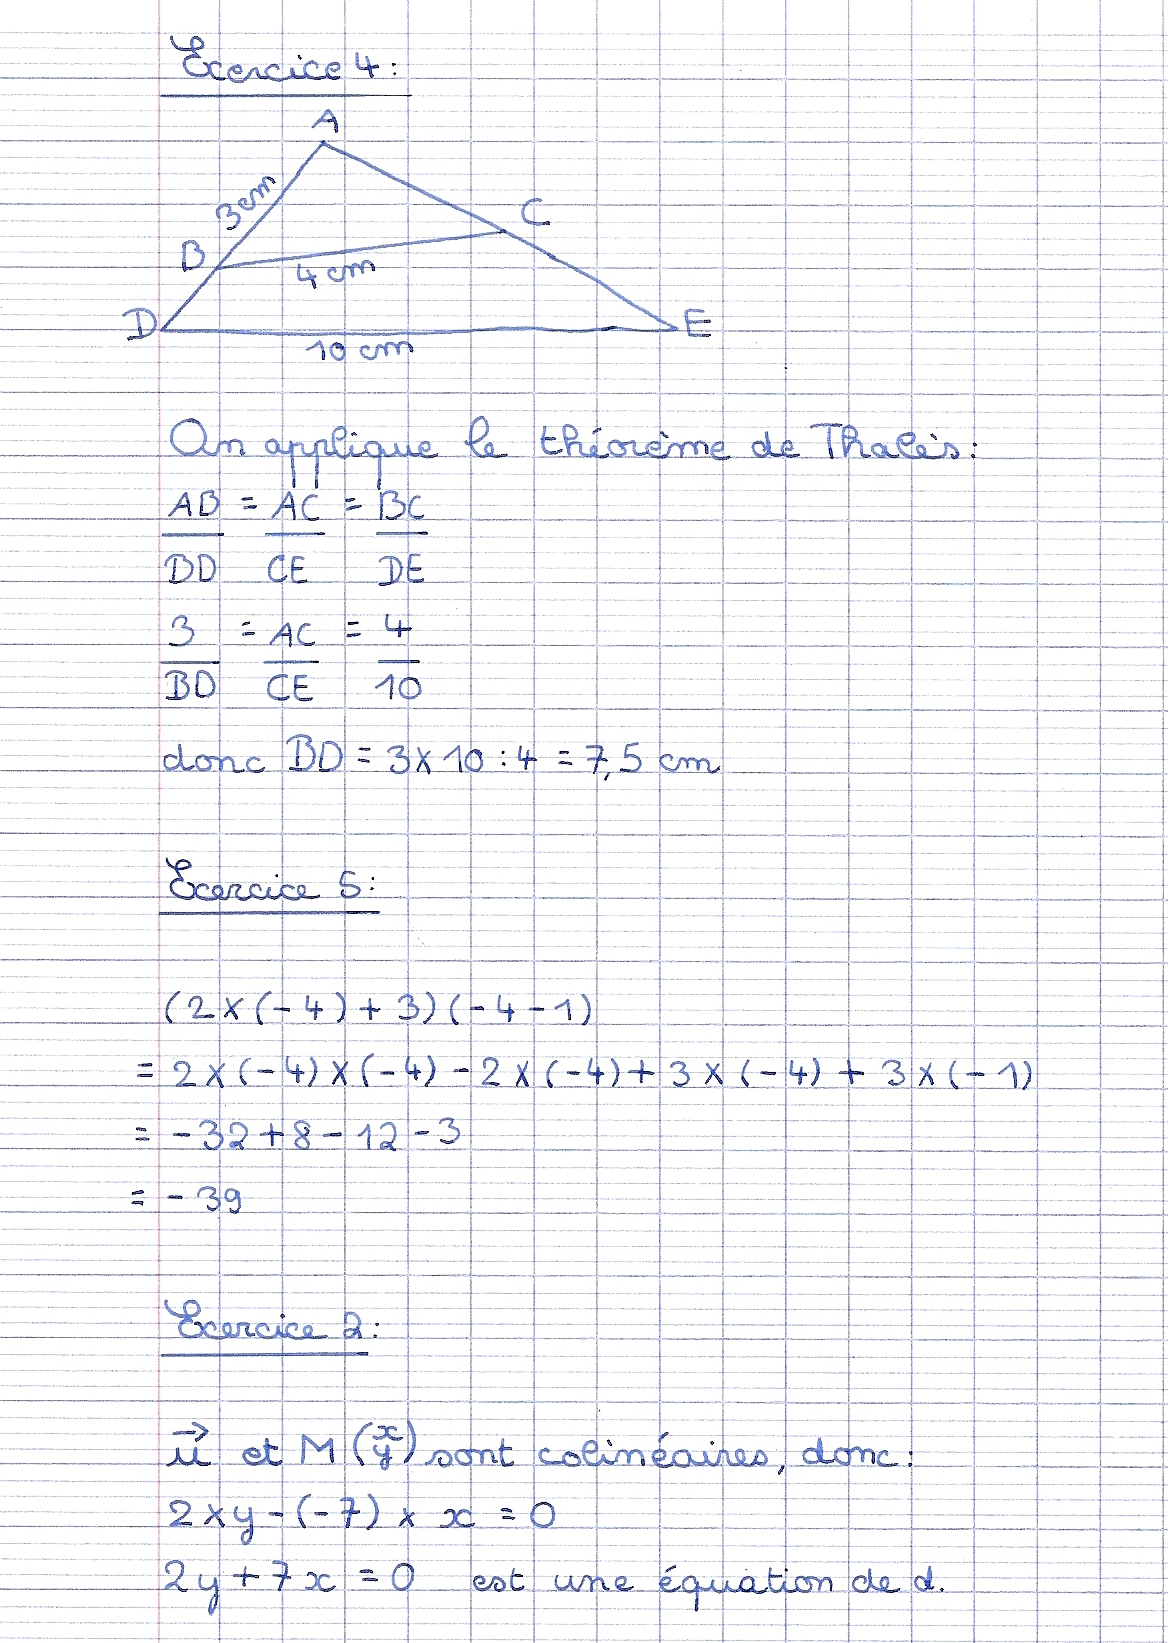 Exercice 4 :
A
3 cm
C
B
4 cm
D
E
10 cm
On applique le théorème de Thalès :
AB = AC = BC
BD CE DE
3 = AC = 4
BD CE 10
donc BD = 3 x 10 : 4 = 7,5 cm
Exercice 5 :
(2 x (-4) + 3)(-4 - 1)
= 2 x (-4) x (-4) - 2 x (-4) + 3 x (-4) + 3 x (-1)
= -32 + 8 - 12 - 3
= - 39
Exercice 2 :
u⃗ et M (x y) sont colinéaires, donc :
2 x y - (-7) x x = 0
2y + 7x = 0 est une équation de d.